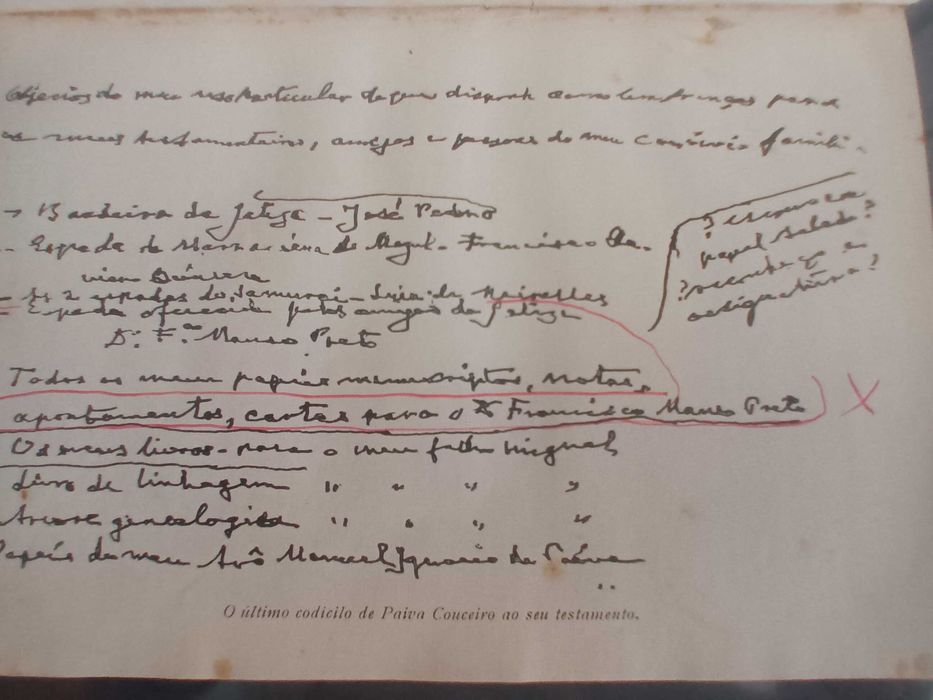 Objectos do meu uso particular de que disponho como lembranças para
os meus testamenteiros, amigos e pessoas do meu convívio
Bandeira da Galiza - José Pedro
Espada de Francisco
As 2 espadas do Samurai - de Meirelles
Espada oferecida pelos amigos da Galiza
Dr. F.co Manso Preto
Todos os meus papeis manuscriptos, notas,
apontamentos, cartas para o Francisco Manso Preto X
Os meus livros - para o meu filho Miguel
Livro de linhagem " " " "
Arvore genealogica " " " "
Papeis do meu Avô Manuel Ignacio da Paiva
? em
papel selado?
?
assignatura?
O último codicilo de Paiva Couceiro ao seu testamento.